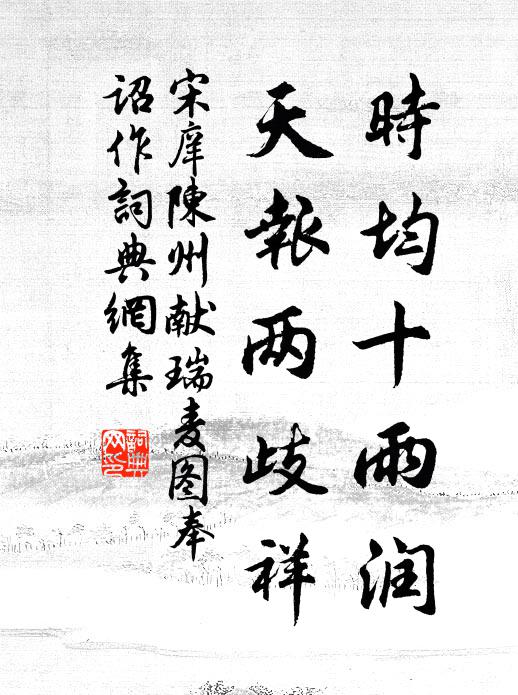 時均十雨润
天報两歧祥
宋庠陳州献瑞麦图奉
詔作詞典網集
詞典网印